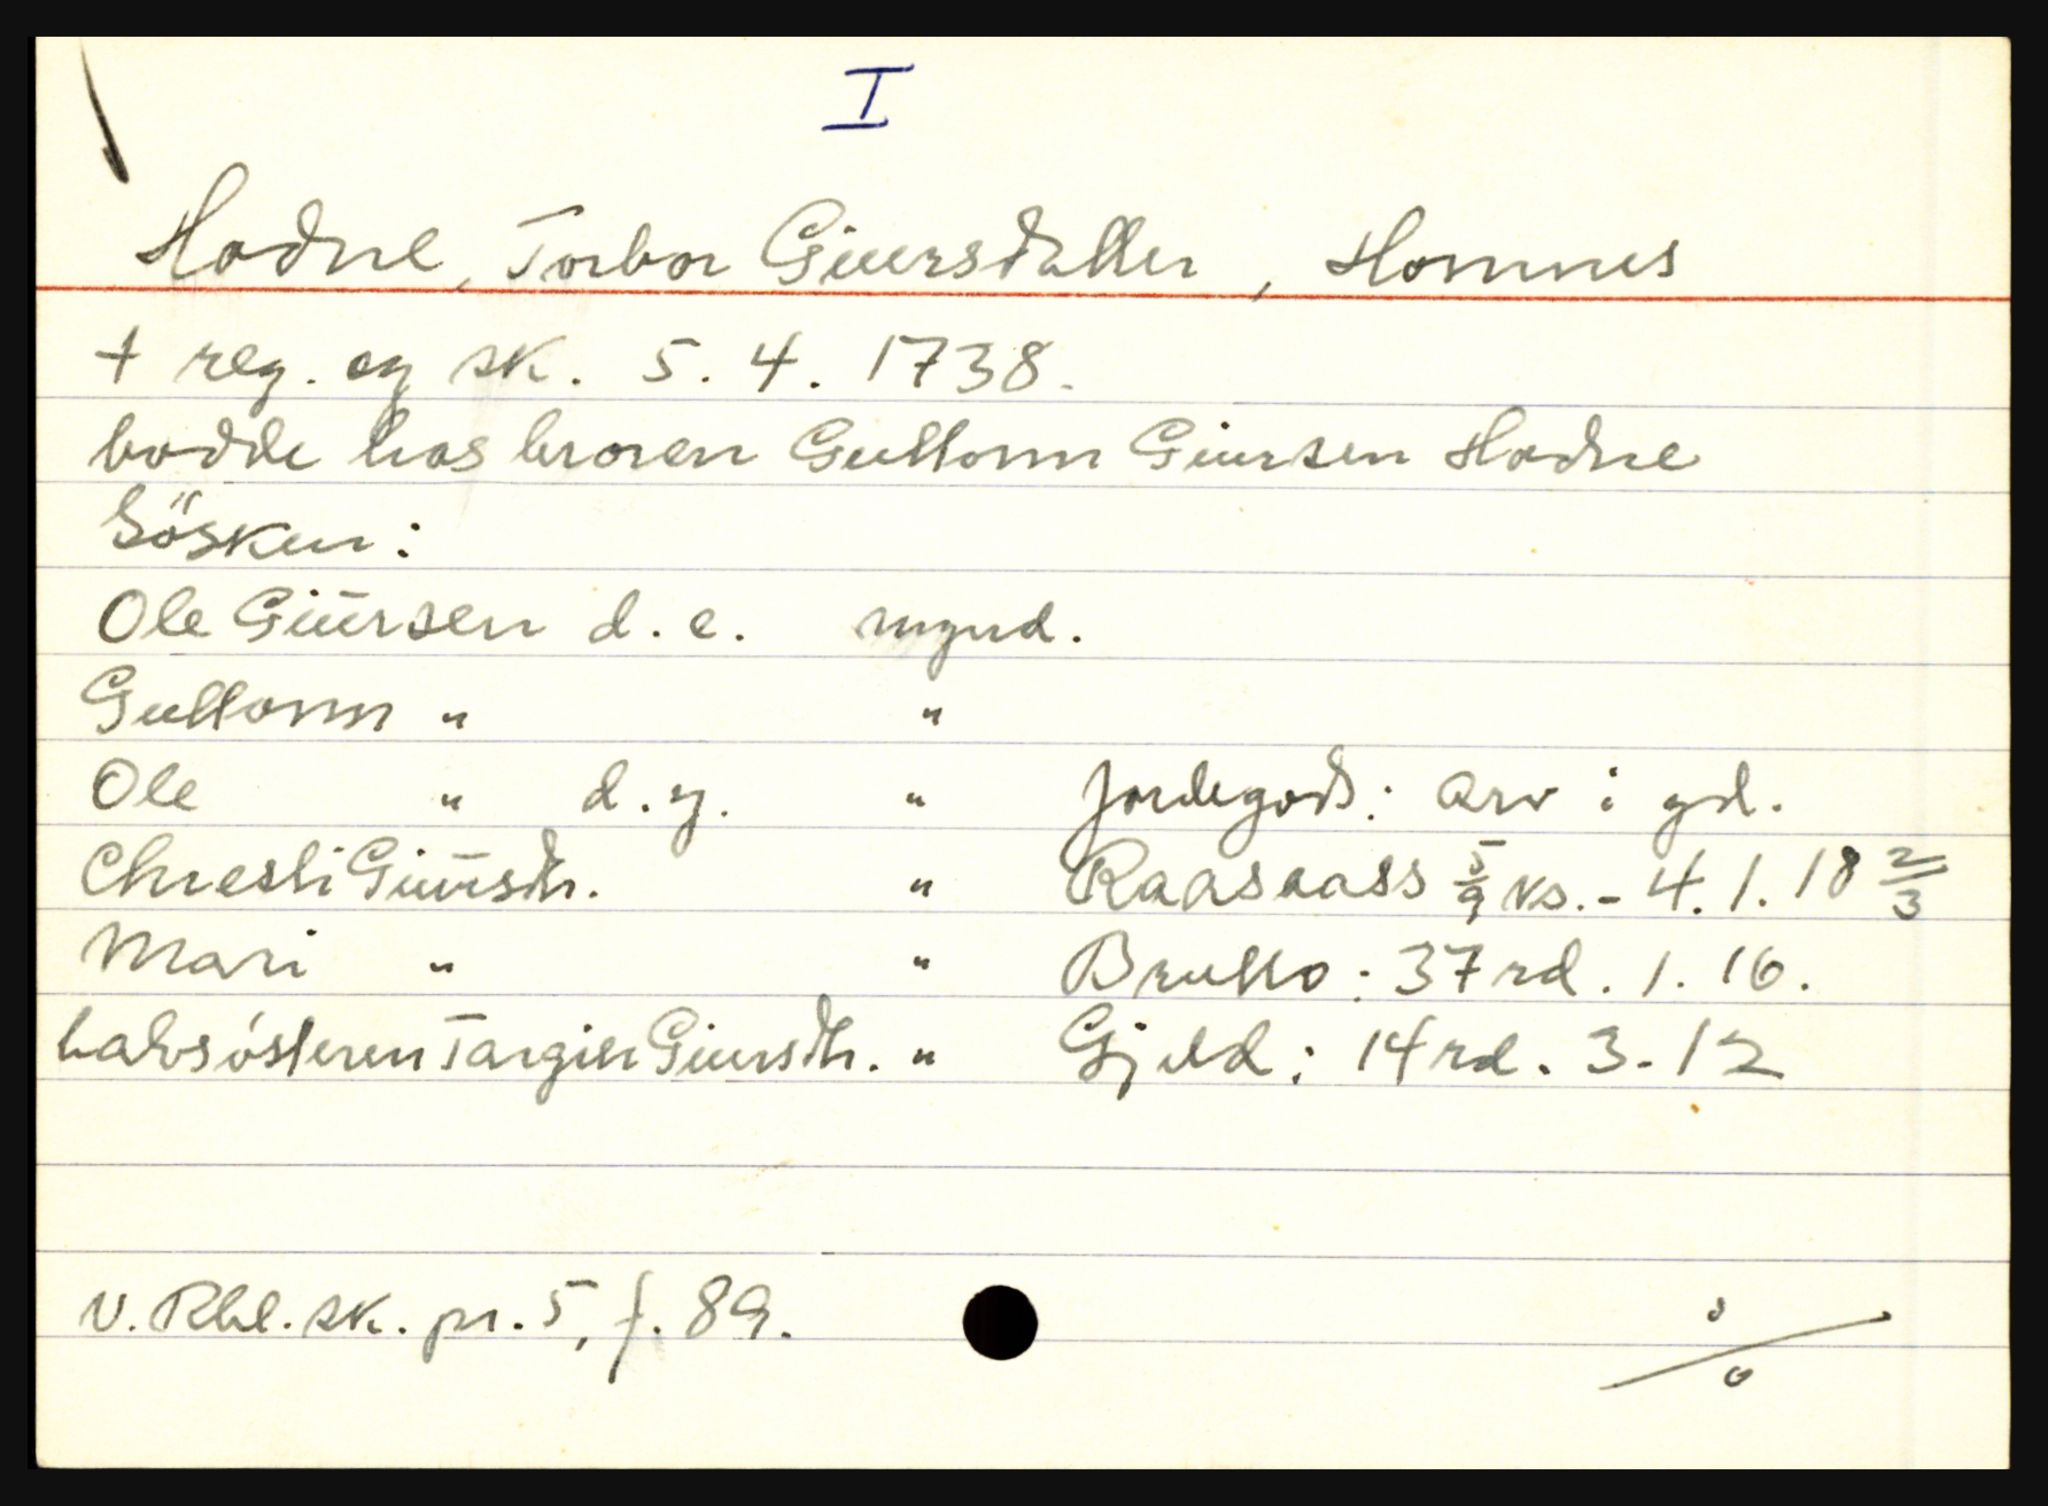 I
Hodne, Torbor Giuersdatter, Homnes
+ reg. og sk. 5. 4. 1738.
bodde hos broren Guttorm Giursen Hodne
Sösken:
Ole Giūrsen d. e. mynd.
Guttorm " "
Ole " d. y. " Jordegods: Arv i gd.
Chresti Giūrsdtr. " Raasaass 5/9 ks. - 4. 1. 18 2/3
Mari " " Brutto: 37 rd. 1. 16.
halvsösteren Torgier Giuersdtr. " Gjeld: 14 rd. 3 - 12
V. Rbl. sk. pr. 5, f. 89.
%